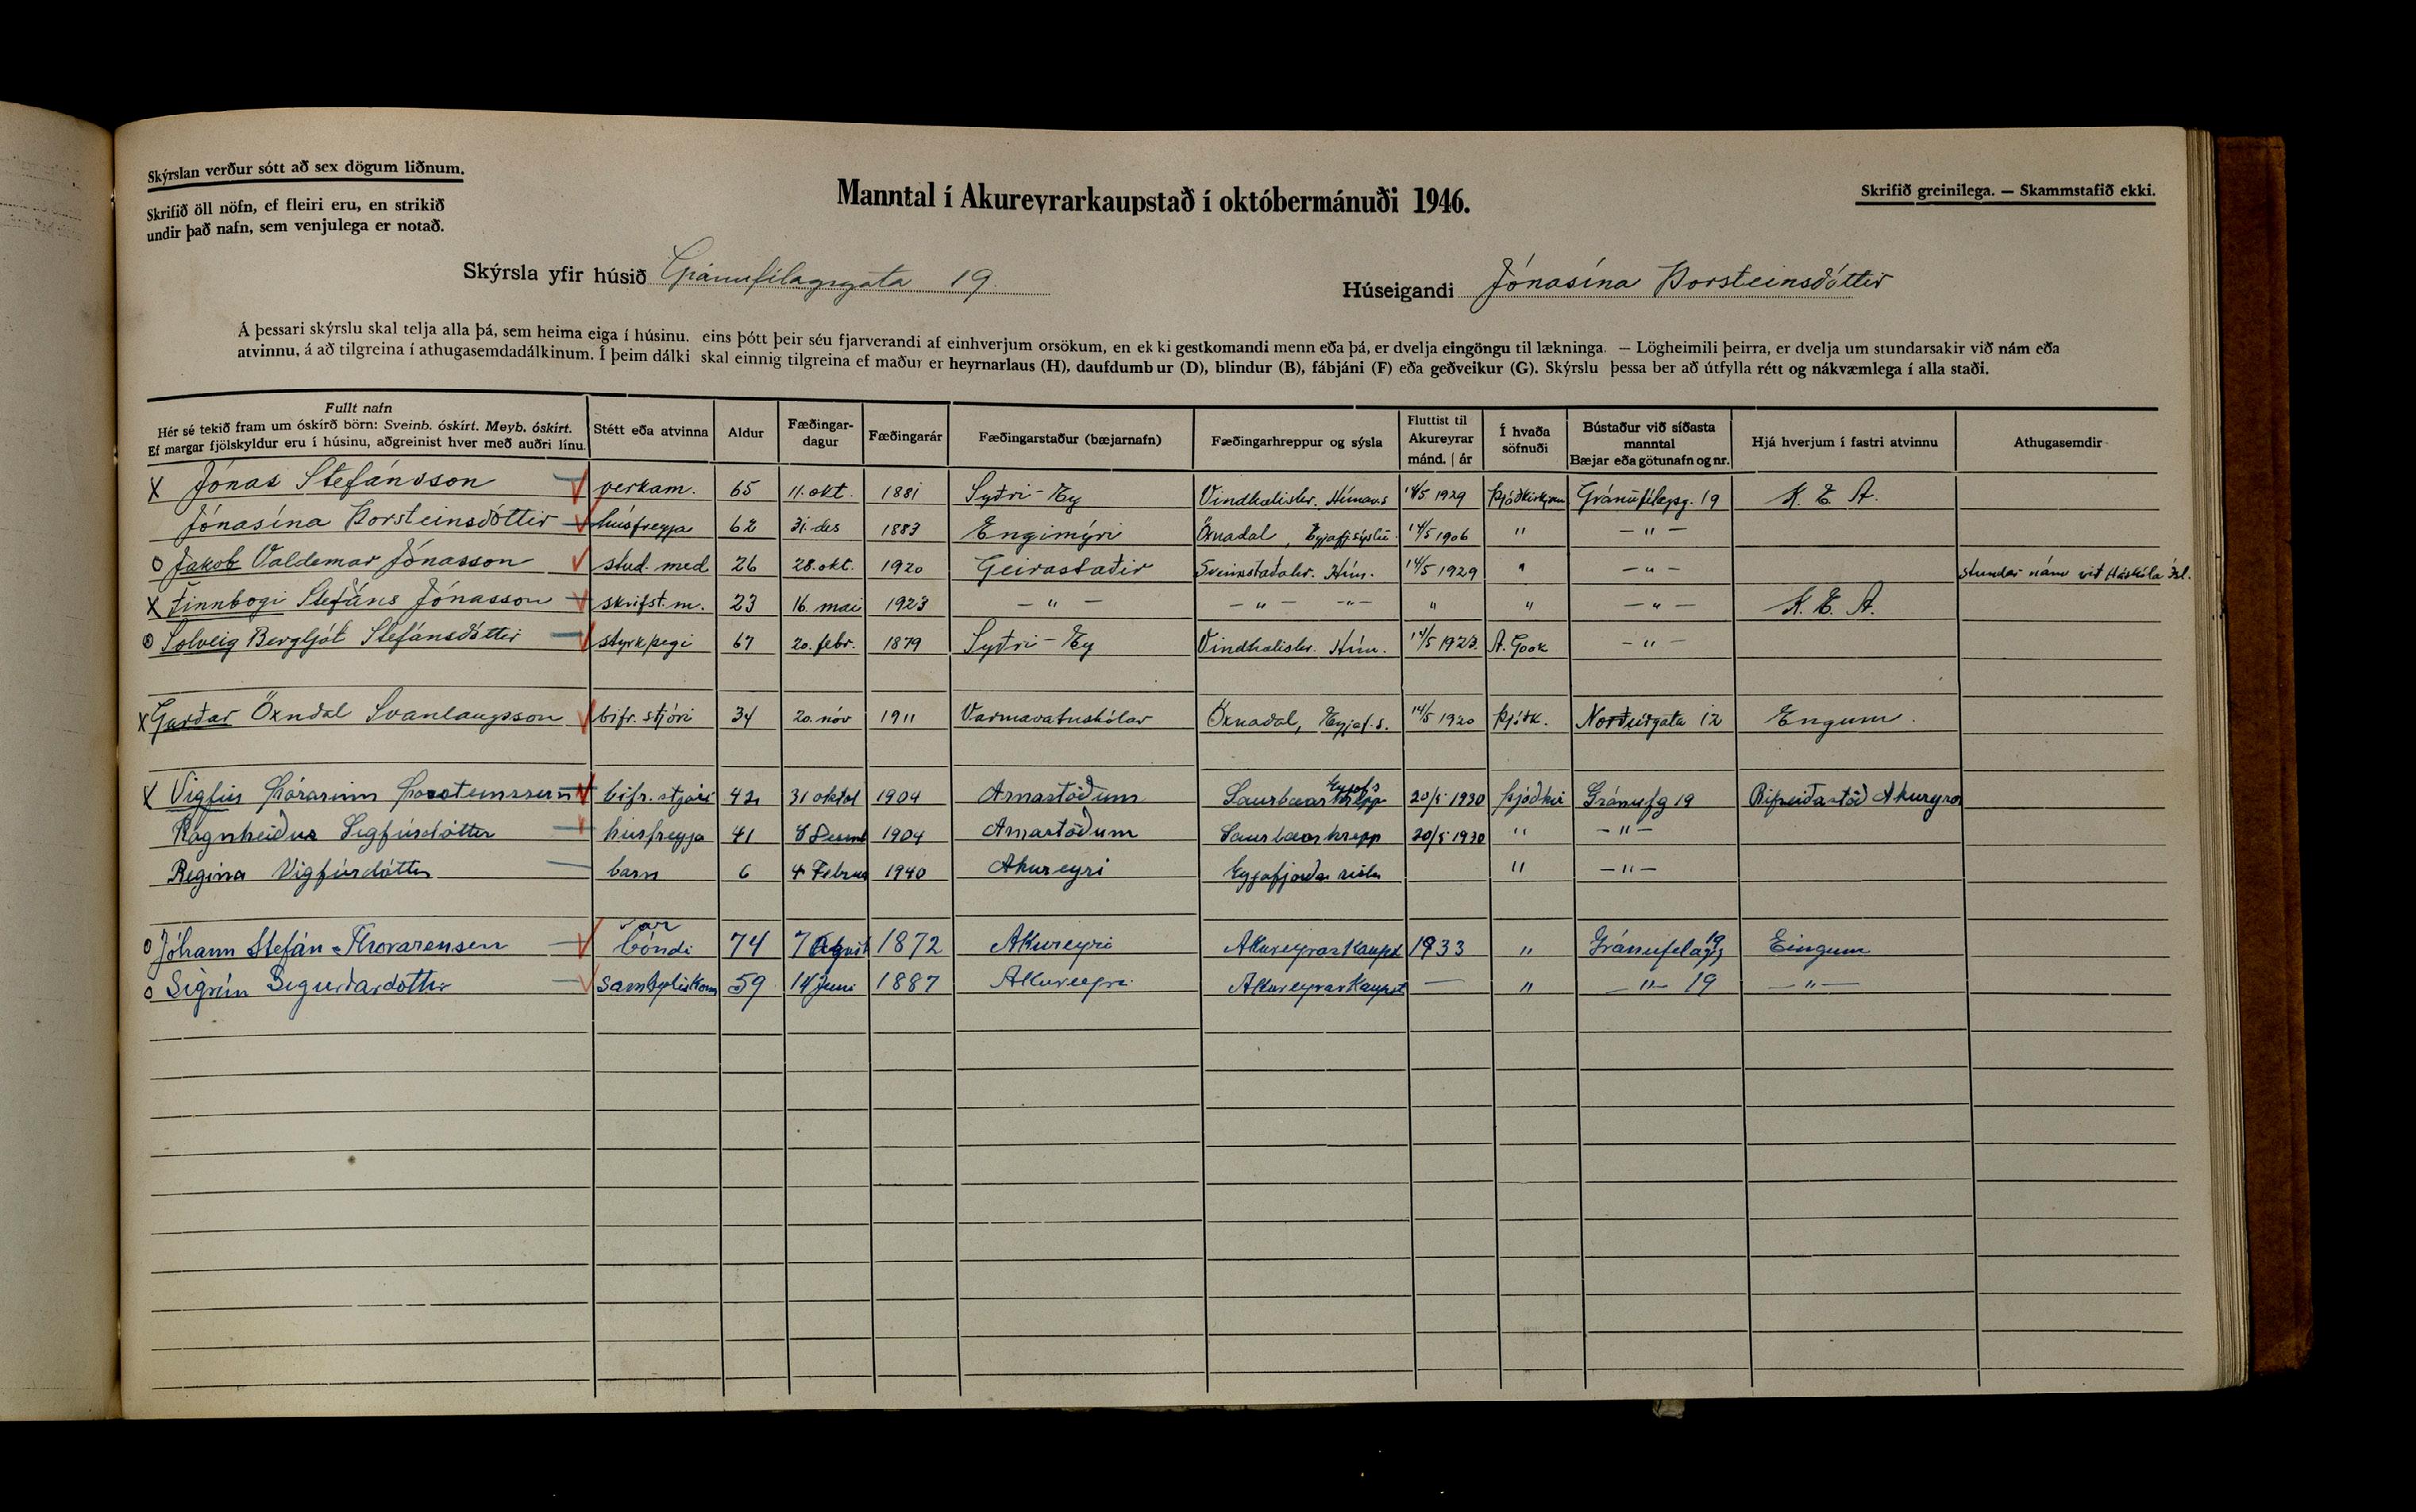 Skýrslan verður sótt að sex dögum liðnum.
Skrifið öll nöfn, ef fleiri eru, en strikið
undir það nafn, sem venjulega er notað.
Manntal í Akureyrarkaupstað í októbermánuði 1946.
Skrifið greinilega. — Skammstafið ekki.
Skýrsla yfir húsið Gránufélagsgata 19.
Húseigandi Jónasína Þorsteinsdóttir
Á þessari skýrslu skal telja alla þá, sem heima eiga í húsinu, eins þótt þeir séu fjarverandi af einhverjum orsökum, en ekki gestkomandi menn eða þá, er dvelja eingöngu til lækninga. — Lögheimili þeirra, er dvelja um stundarsakir við nám eða
atvinnu, á að tilgreina í athugasemdadálkinum. Í þeim dálki skal einnig tilgreina ef maður er heyrnarlaus (H), daufdumbur (D), blindur (B), fábjáni (F) eða geðveikur (G). Skýrslu þessa ber að útfylla rétt og nákvæmlega í alla staði.
Fullt nafn
Hér sé tekið fram um óskírð börn: Sveinb. óskírt. Meyb. óskírt.
Ef margar fjölskyldur eru í húsinu, aðgreinist hver með auðri línu.
Stétt eða atvinna
Aldur
Fæðingar-
dagur
Fæðingarár
Fæðingarstaður (bæjarnafn)
Fæðingarhreppur og sýsla
Fluttist til
Akureyrar
mánd. | ár
Í hvaða
söfnuði
Bústaður við síðasta
manntal
Bæjar eða götunafn og nr.
Hjá hverjum í fastri atvinnu
Athugasemdir
X Jónas Stefánsson verkam. 65 11. okt. 1881 Syðri-Ey Vindhælishr. Húnav.s 14/5 1929 Þjóðkirkjan Gránufélagsg. 19 K. E. A.
Jónasína Þorsteinsdóttir húsfreyja 62 31. des 1883 Engimýri Öxnadal, Eyjafj.sýslu 14/5 1906 " — " —
o Jakob Valdemar Jónasson stud. med 26 28. okt. 1920 Geirastaðir Sveinsstaðahr. Hún. 14/5 1929 " — " — stundar nám við Háskóla Ísl.
X Finnbogi Stefáns Jónasson skrifst.m. 23 16. mai 1923 — " — — " — — " — " " — " — K. E. A.
Solveig Bergljót Stefánsdóttir styrkþegi 67 20. febr. 1879 Syðri-Ey Vindhælishr. Hún. 14/5 1923. A. Gook — " —
X Garðar Öxndal Svanlaugsson bifr.stjóri 34 20. nóv 1911 Varmavatnshólar Öxnadal, Eyjaf.s. 14/5 1920 Þjóðk. Norðurgata 12 Engum.
X Vigfús Þórarinn Þorsteinsson bifr.stjóri 42 31 oktob 1904 Arnastöðum Saurbæarhrepp 20/5 1930 Þjóðkir Gránufg 19 Bifreiðastöð Akureyrar
Ragnheiður Sigfúsdóttir húsfreyja 41 1904 Arnastöðum Saurbæarhrepp 20/5 1930 " — " —
Regina Vigfúsdóttir barn 6 4 Februa 1940 Akureyri Eyjafjarðar sísla " — " —
o Jóhann Stefán Thorarensen var bóndi 74 7 August 1872 Akureyri Akureyrarkaupst 1933 " Gránufelagsg 19 Eingum
o Sigrún Sigurðardóttir sambyliskona 59 14 Juni 1887 Akureyri Akureyrarkaupst — " — " — 19 — " —